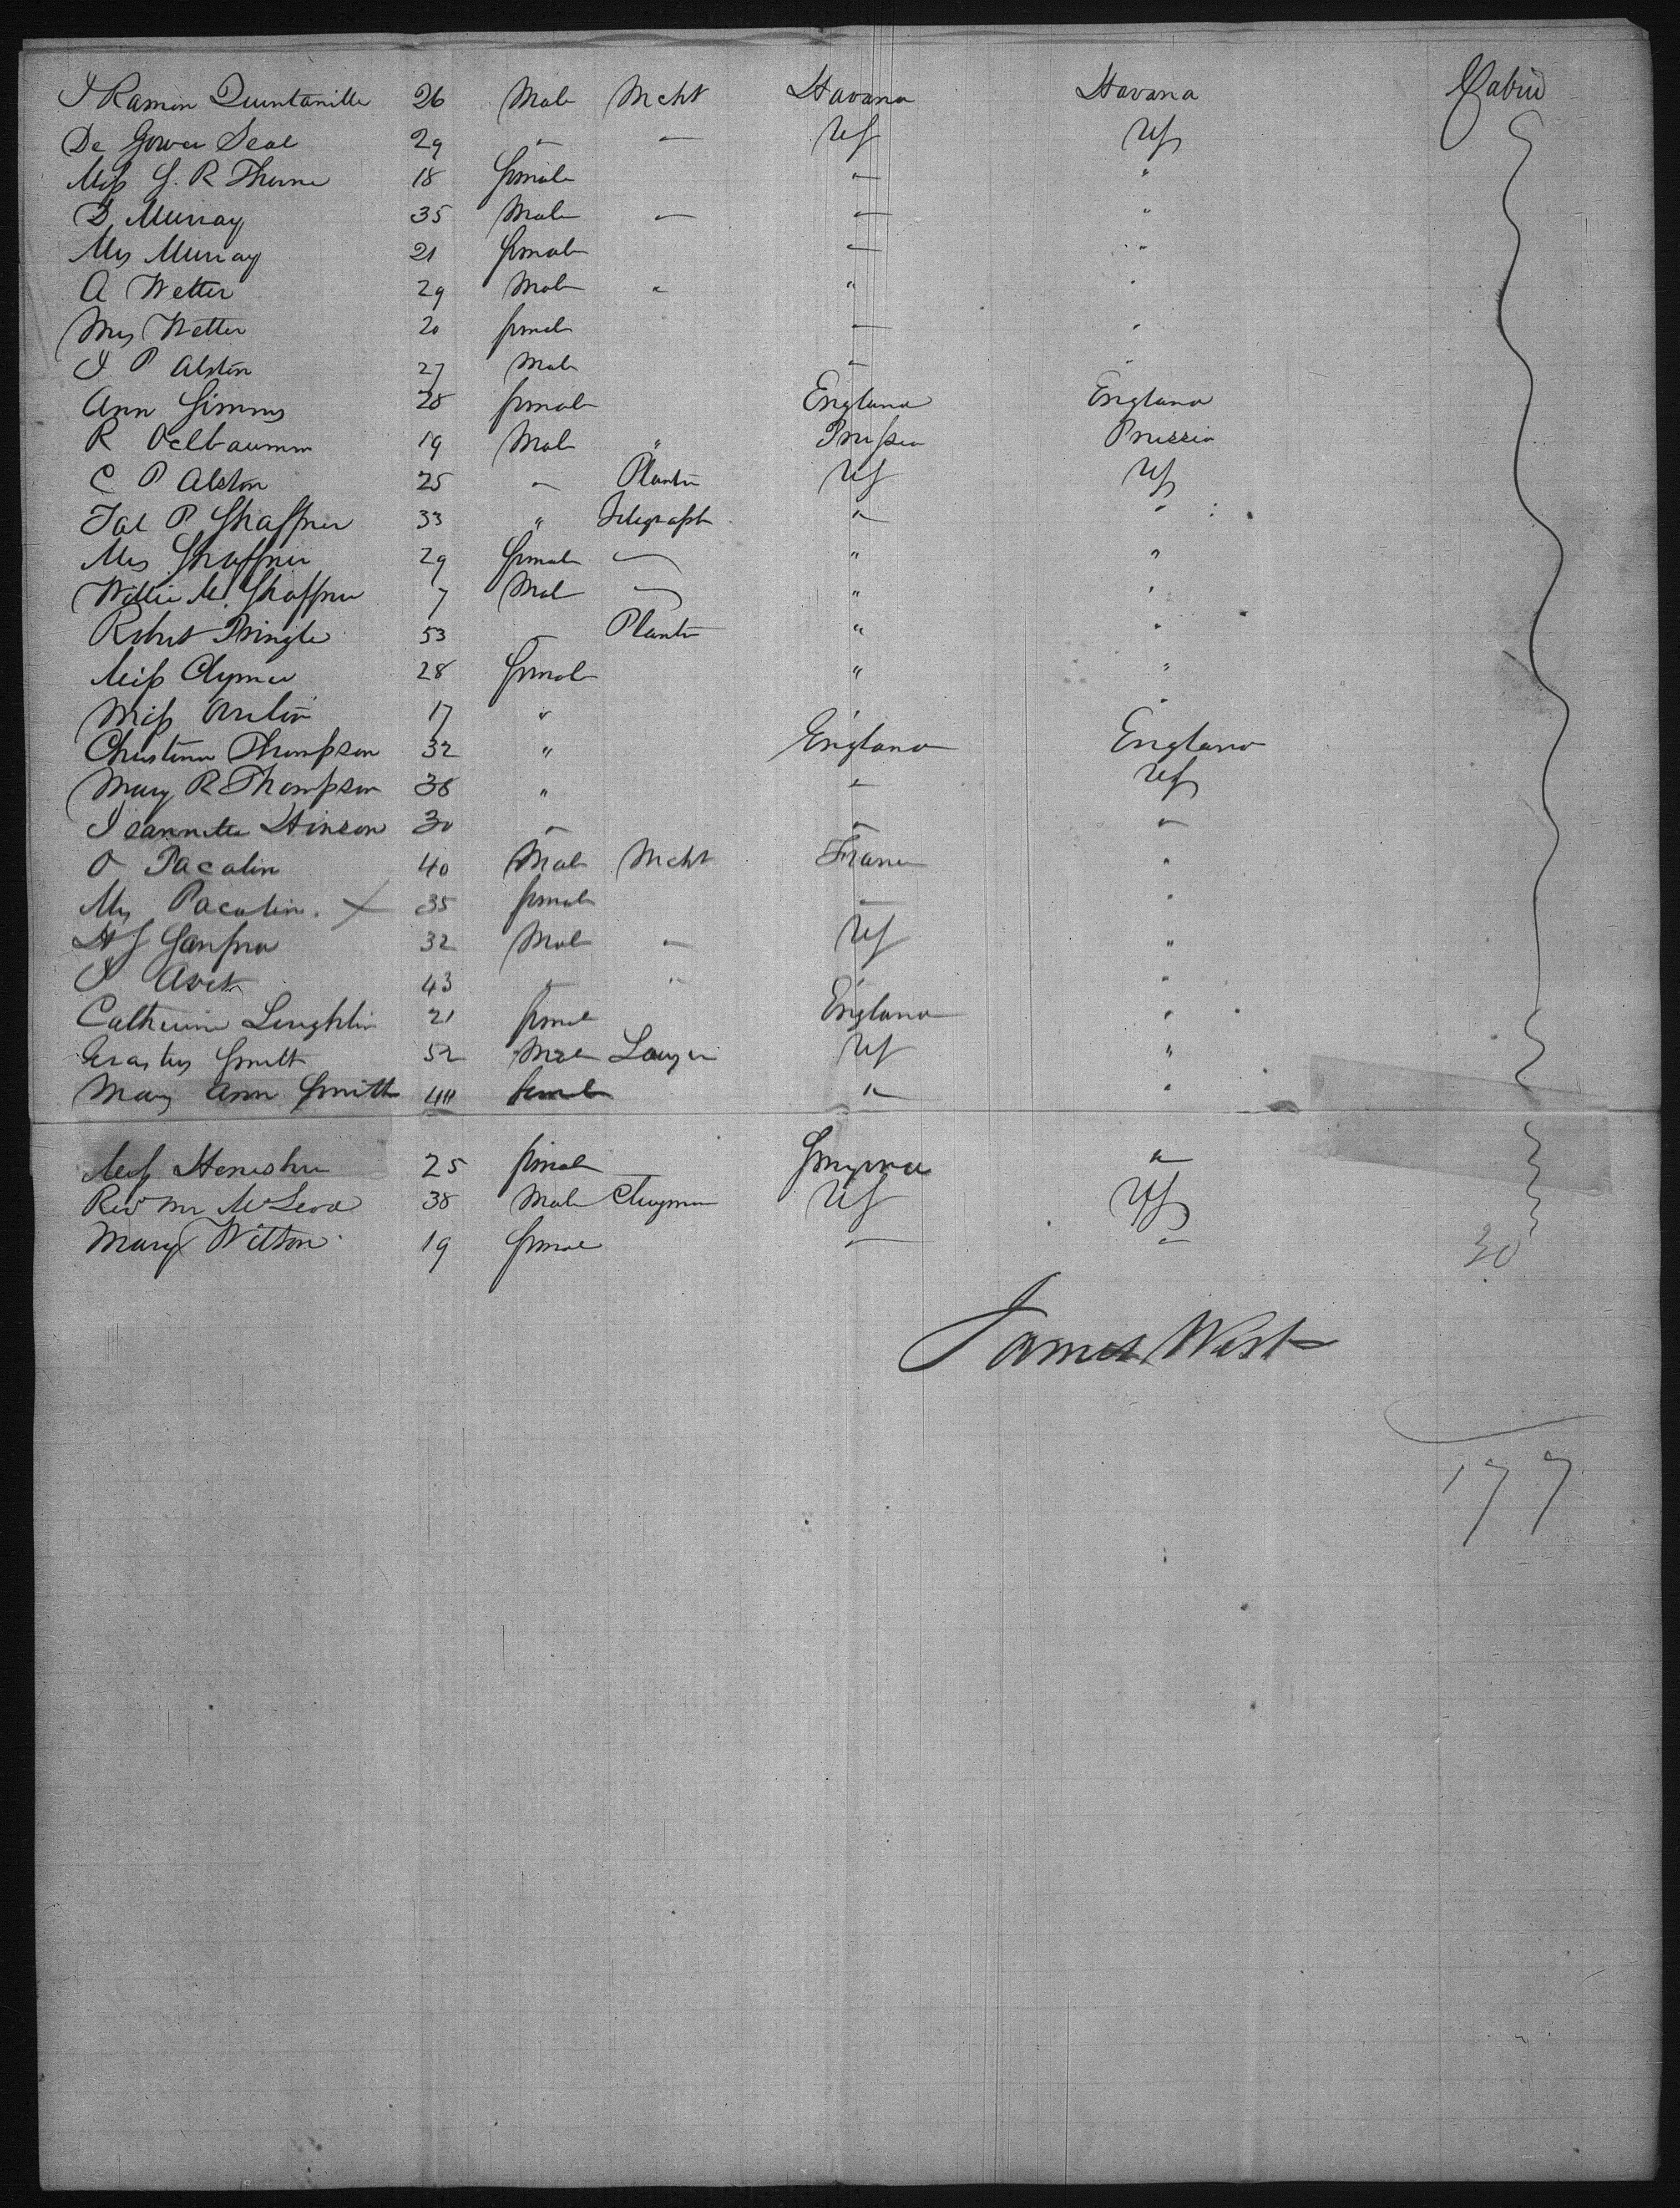 J Ramon Quintanilla 26 Male Mcht Havana Havana Cabin
De Gower Seal 29 " — US US
Miss S. R Thorne 18 female — "
D Murray 35 Male — — "
Mrs Murray 21 female — "
A Wetter 29 Male " " "
Mrs Wetter 20 female — "
J P Alston 27 Male " "
Ann Simms 28 female England England
R Oelbaumm 19 Male " Prussia Prussia
C P Alston 25 " Planter US US
Tal P Shaffner 33 " Telegraph " "
Mrs Shaffner 29 female — " "
Willie M. Shaffner 7 Male — " "
Robert Pringle 53 — Planter " "
Miss Clymer 28 female " "
Miss 17 " " "
Christina Thompson 32 " England England
Mary R Thompson 38 " " US
Jeannette Hinson 30 " " "
O Pacalin 40 Male Mcht France "
Mrs Pacalin. X 35 female — "
H S 32 Male — US "
J 43 " " " "
Catherine Loughlin 21 female England "
Erastus Smith 52 Male Lawyer US "
Mary Ann Smith 44 female " "
Miss 25 female Smyrna "
Revd Mr McLeod 38 Male Clergyman US US
Mary Wilson 19 female — "
30
James West
177